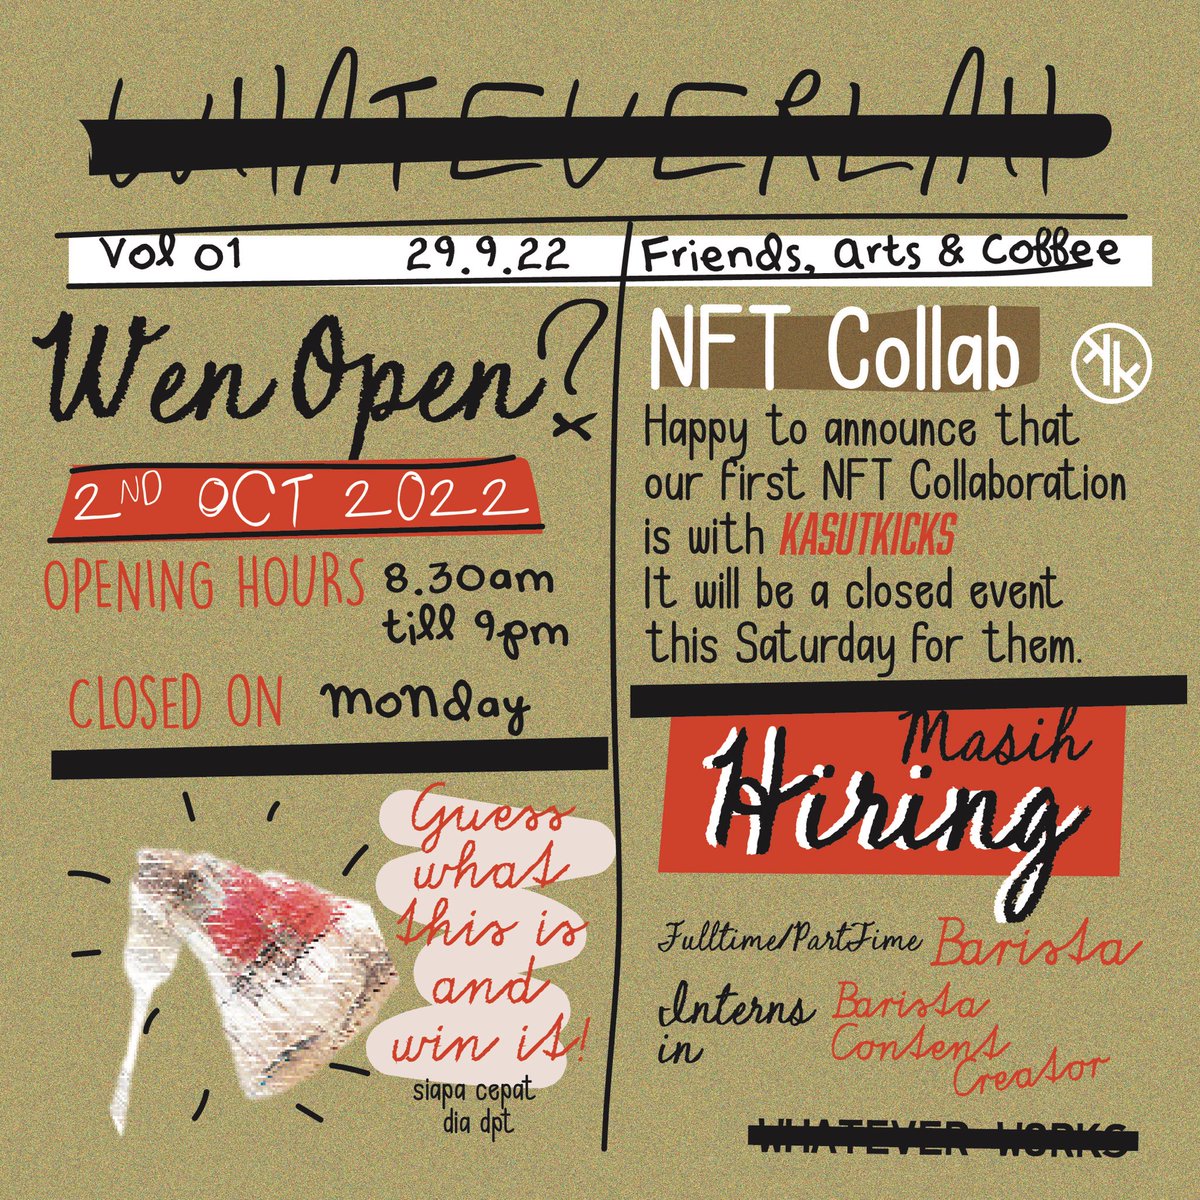 WHATEVERLAH
Vol 01
29.9.22
Friends, arts & Coffee
Wen Open?
2ND OCT 2022
OPENING HOURS
8.30am
till 9pm
CLOSED ON
monday
Guess
what
this is
and
win it!
siapa cepat
dia dpt
NFT Collab
kk
Happy to announce that
our first NFT Collaboration
is with KASUTKICKS
It will be a closed event
this Saturday for them.
Masih
Hiring
Fulltime/PartTime Barista
Interns
in
Barista
Content
Creator
WHATEVER WORKS